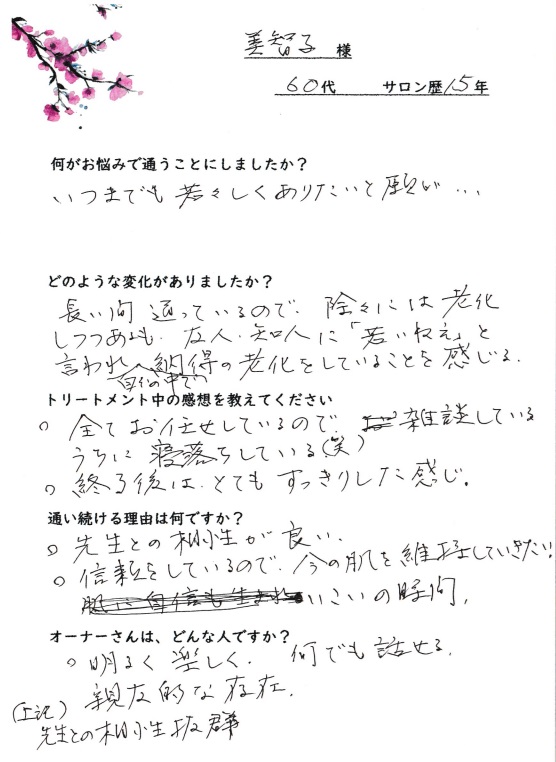 美智子 様
60代 サロン歴15年
何がお悩みで通うことにしましたか？
いつまでも若々しくありたいと願い...
どのような変化がありましたか？
長い間通っているので、除々には老化
しつつあるも、友人・知人に「若いねえ」と
言われ、納得の老化をしていることを感じる。
(自分の中で)
トリートメント中の感想を教えてください
○ 全てお任せしているので、雑談している
うちに寝落ちしている(笑)
○ 終了後は、とてもすっきりした感じ。
通い続ける理由は何ですか？
○ 先生との相性が良い、
○ 信頼をしているので、今の肌を維持していきたい!
肌に自信も生まれ いこいの時間。
オーナーさんは、どんな人ですか？
○ 明るく楽しく、何でも話せる
親友的な存在。
(上記)
先生との相性抜群